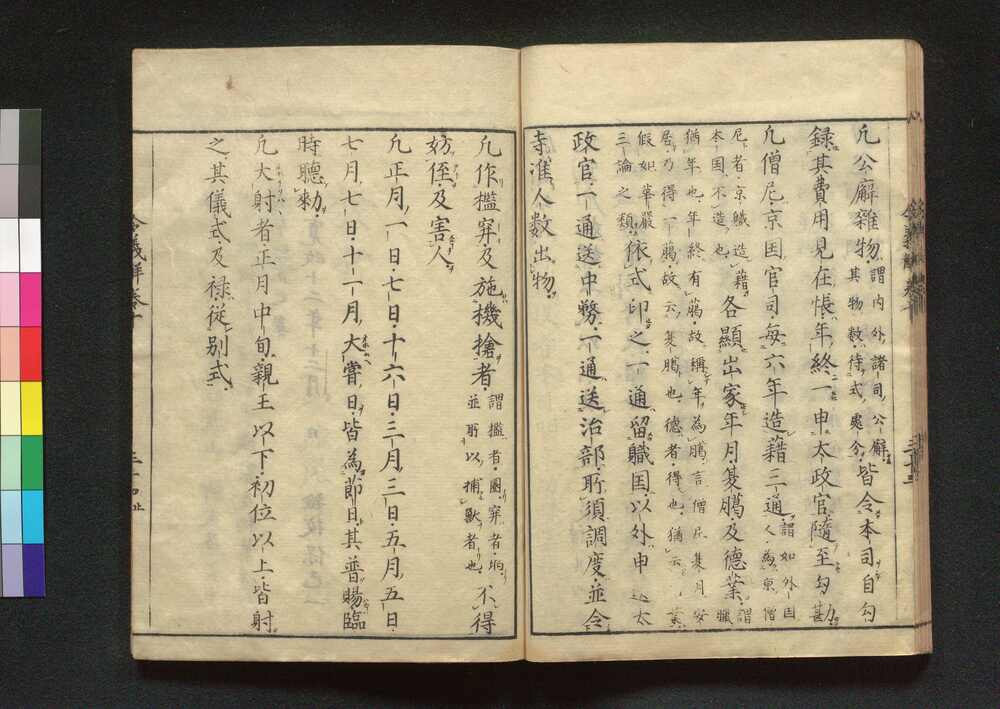 凡公廨雜物謂内外諸司公廨其物数待式處分皆令本司自勾
録其費用見在帳年終一申太政官隨至勾勘
凡僧尼京国官司毎六年造藉三通謂如外国人為京僧
尼者京職造藉本国不造也各顯出家年月夏臈及德業謂
猶年也年終有臈故稱年為臈言僧尼夏月安
居乃得一臈故云夏臈也德者得也猶云業
假如華嚴三論之類依式印之一通留職国以外申送太
政官一通送中務一通送治部所須調度並令
寺准人数出物
凡作檻穽及施機搶者謂檻者圈穽者坑並所以捕獸者也不得
妨俓及害人
凡正月一日七日十六日三月三日五月五日
七月七日十一月大嘗日皆為節日其普賜臨
時聽勅
凡大射者正月中旬親王以下初位以上皆射
之其儀式及禄從別式
令義解卷十